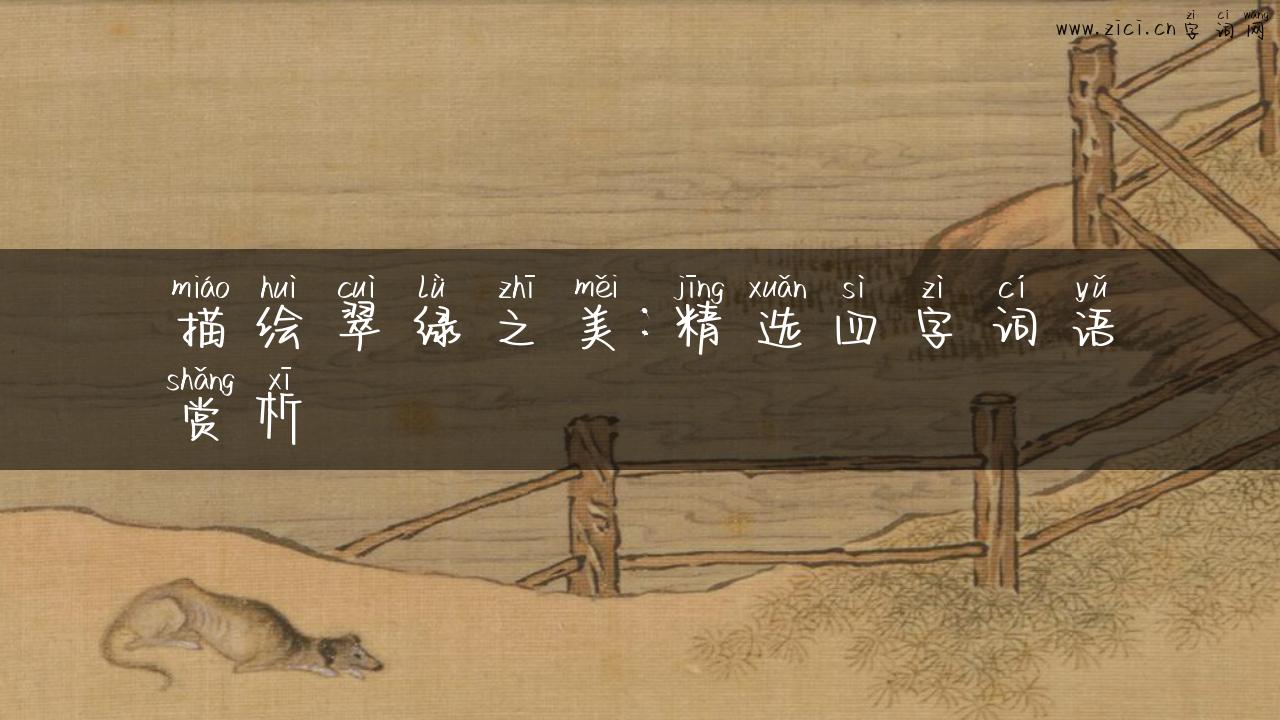 zì cí wǎng
www.zici.cn 字词网
miáo huì cuì lǜ zhī měi jīng xuǎn sì zì cí yǔ
描绘翠绿之美：精选四字词语
shǎng xī
赏析